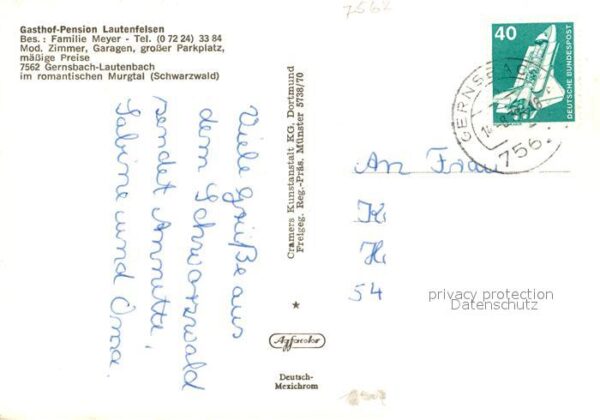 Gasthof-Pension Lautenfelsen
Bes.: Familie Meyer - Tel. (0 72 24) 33 84
Mod. Zimmer, Garagen, großer Parkplatz,
mäßige Preise
7562 Gernsbach-Lautenbach
im romantischen Murgtal (Schwarzwald)
7562
40
DEUTSCHE BUNDESPOST
GERNSBACH
756
Viele Grüße aus
dem Schwarzwald
sendet Annette,
Sabine und Oma.
Cramers Kunstanstalt KG, Dortmund
Freigeg. Reg.-Präs. Münster 5738/70
An Frau
K
H
54
privacy protection
Datenschutz
Agfacolor
Deutsch-
Mexichrom